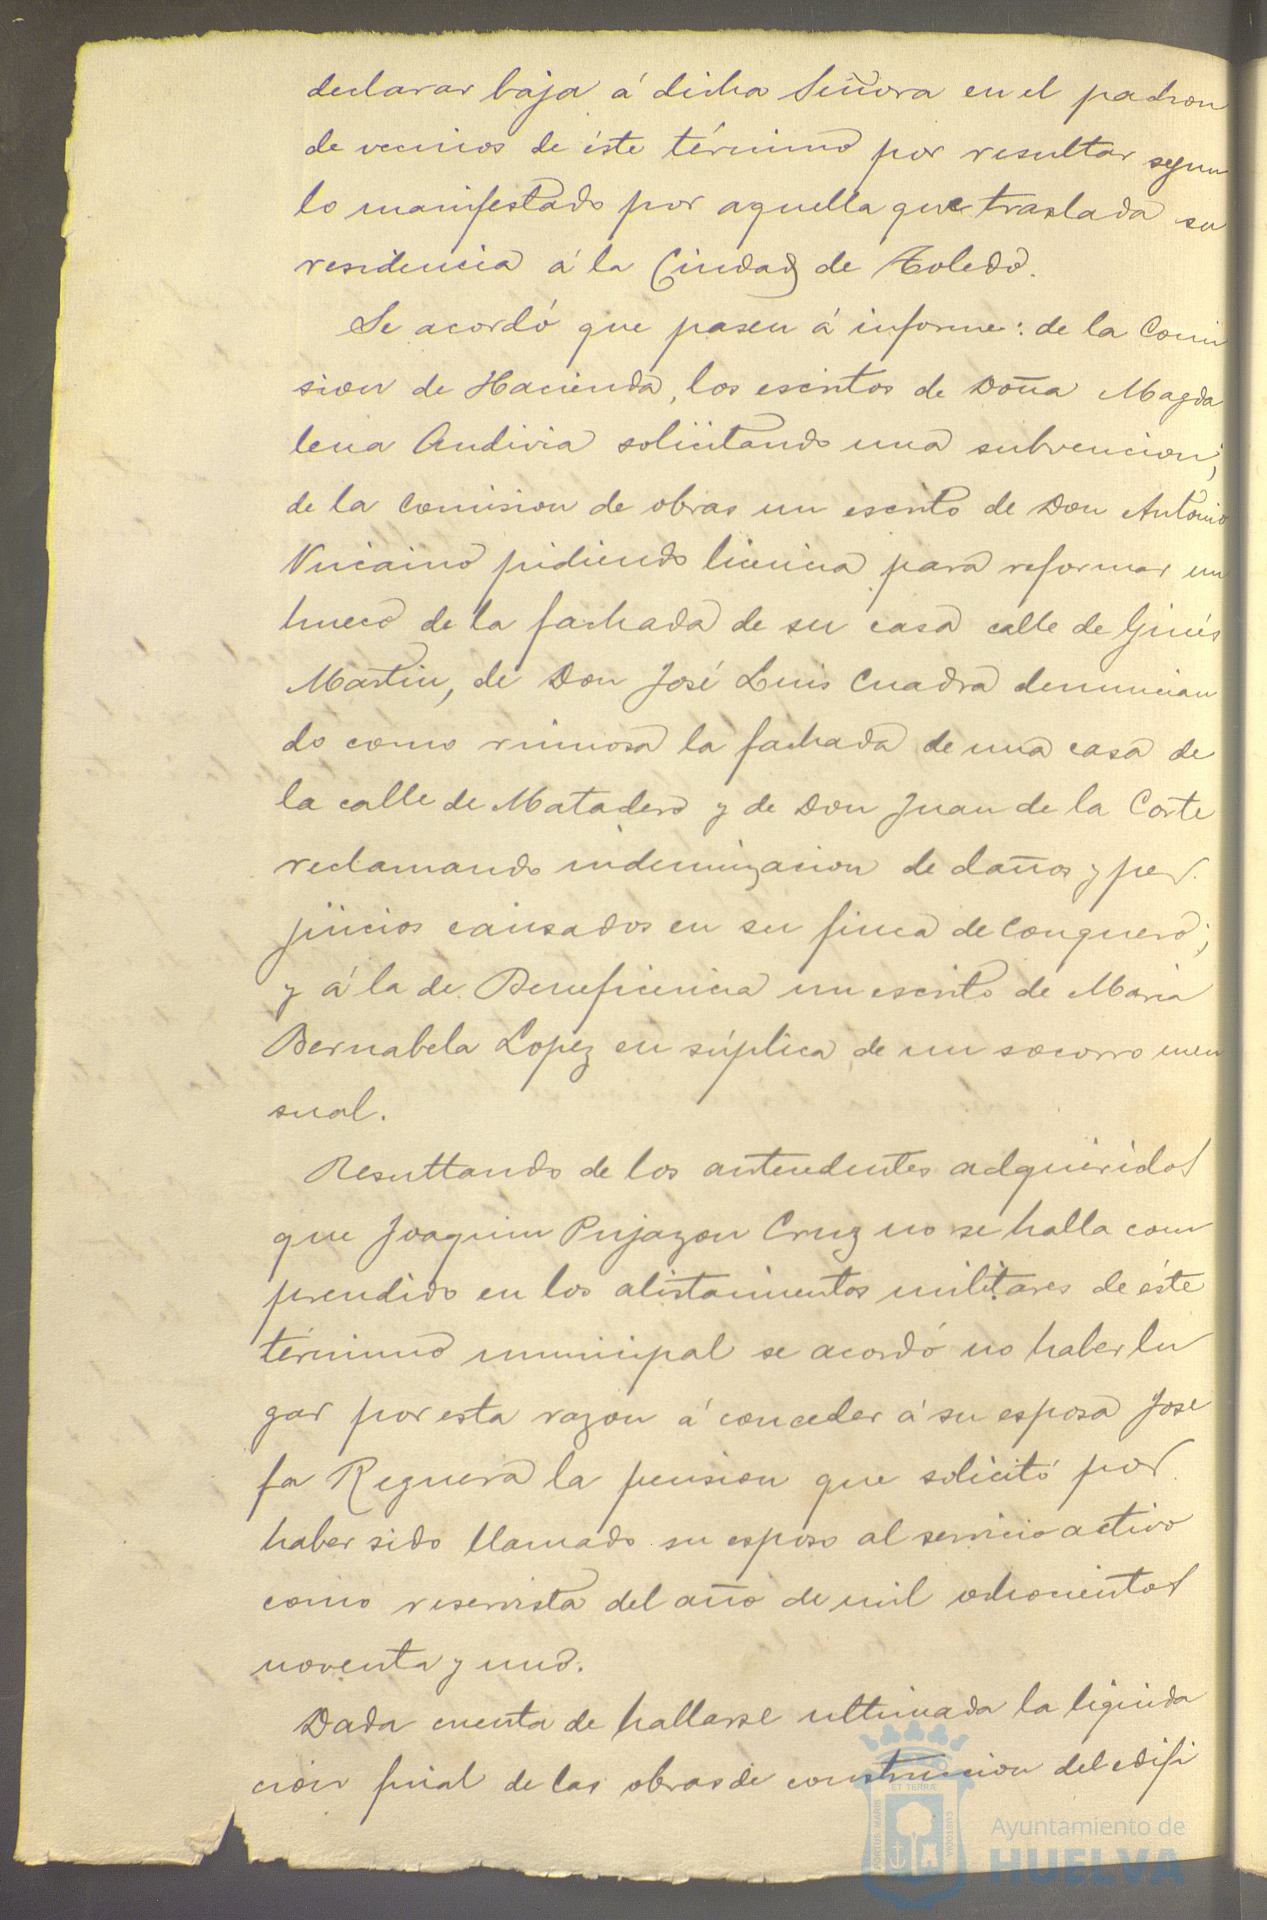 declarar baja á dicha Señora en el padron
de vecinos de éste término por resultar segun
lo manifestado por aquella que traslada su
residencia á la Ciudad de Toledo.
Se acordó que pasen á informe: de la Comi
sion de Hacienda, los escritos de Doña Magda
lena Andivia solicitando una subvencion;
de la Comision de obras un escrito de Don Antonio
Vizcaino pidiendo licencia para reformar un
hueco de la fachada de su casa calle de Ginés
Martin, de Don José Luis Cuadra denuncian
do como ruinosa la fachada de una casa de
la calle de Matadero y de Don Juan de la Corte
reclamando indemnizacion de daños y per
juicios causados en su finca de Conquero;
y á la de Beneficencia un escrito de Maria
Bernabela Lopez en súplica de un socorro men
sual.
Resultando de los antecedentes adquiridos
que Joaquin Pujazon Cruz no se halla com
prendido en los alistamientos militares de éste
término municipal se acordó no haber lu
gar por esta razon á conceder á su esposa Jose
fa Reguera la pension que solicitó por
haber sido llamado su esposo al servicio activo
como reservista del año de mil ochocientos
noventa y uno.
Dada cuenta de hallarse ultimada la liquida
cion final de las obras de construccion del edifi
PORTUS MARIS
ET TERRÆ
CUSTODIA
Ayuntamiento de
HUELVA